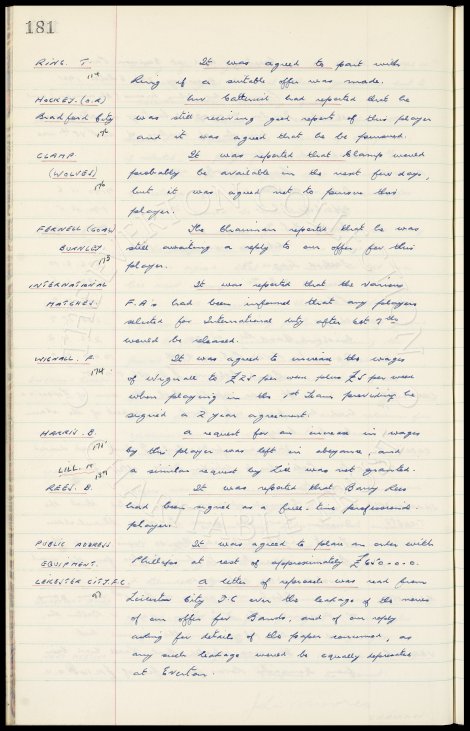 181
RING. T. It was agreed to part with
174
Ring if a suitable offer was made.
HOCKEY. (O.R) Mr Catterick had reported that he
Bradford City was still receiving good report of this player
and it was agreed that he be pursued.
CLAMP It was reported that Clamp would
(WOLVES) probably be available in the next few days,
176
but it was agreed not to pursue this
player.
FERNELL (GOAL) The Chairman reported that he was
BURNLEY. still awaiting a reply to our offer for this
178
player.
INTERNATIONAL It was reported that the various
MATCHES. F.A's had been informed that any players
selected for International duty after Oct 7th
would be released.
WIGNALL. F. It was agreed to increase the wages
174 of Wignall to £25 per week plus £5 per week
when playing in the 1st Team providing he
signed a 2 year agreement.
HARRIS. B. A request for an increase in wages
171 by this player was left in abeyance, and
LILL. M a similar request by Lill was not granted.
159
REES. B. It was reported that Barry Rees
had been signed as a full-time professional
player.
PUBLIC ADDRESS It was agreed to place an order with
EQUIPMENT. Phillips at cost of approximately £650-0-0.
LEICESTER CITY.F.C. A letter of reproach was read from
Leicester City F.C over the leakage of the news
of our offer for Banks, and of our reply
asking for details of the paper concerned, as
any such leakage would be equally deprecated
at Everton.